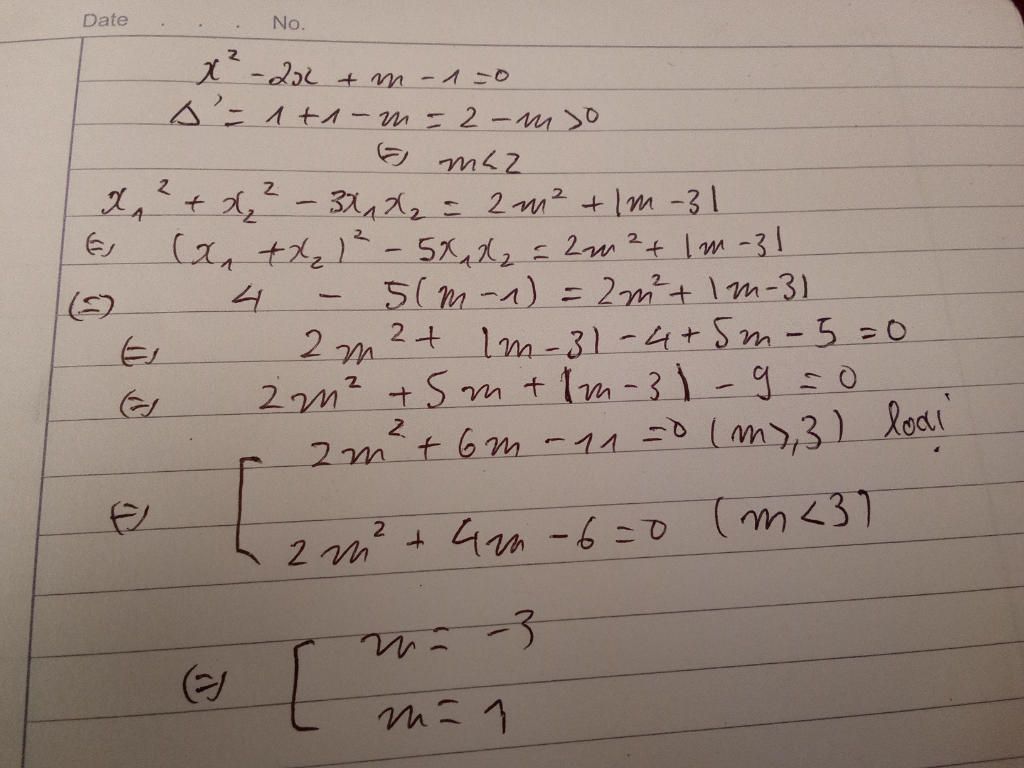 Date . . . No.
x² - 2x + m - 1 = 0
Δ' = 1 + 1 - m = 2 - m > 0
⇔ m < 2
x₁² + x₂² - 3x₁x₂ = 2m² + |m - 3|
⇔ (x₁ + x₂)² - 5x₁x₂ = 2m² + |m - 3|
⇔ 4 - 5(m - 1) = 2m² + |m - 3|
⇔ 2m² + |m - 3| - 4 + 5m - 5 = 0
⇔ 2m² + 5m + |m - 3| - 9 = 0
⇔ [ 2m² + 6m - 11 = 0 (m ≥ 3) loại
2m² + 4m - 6 = 0 (m < 3)
⇔ [ m = -3
m = 1